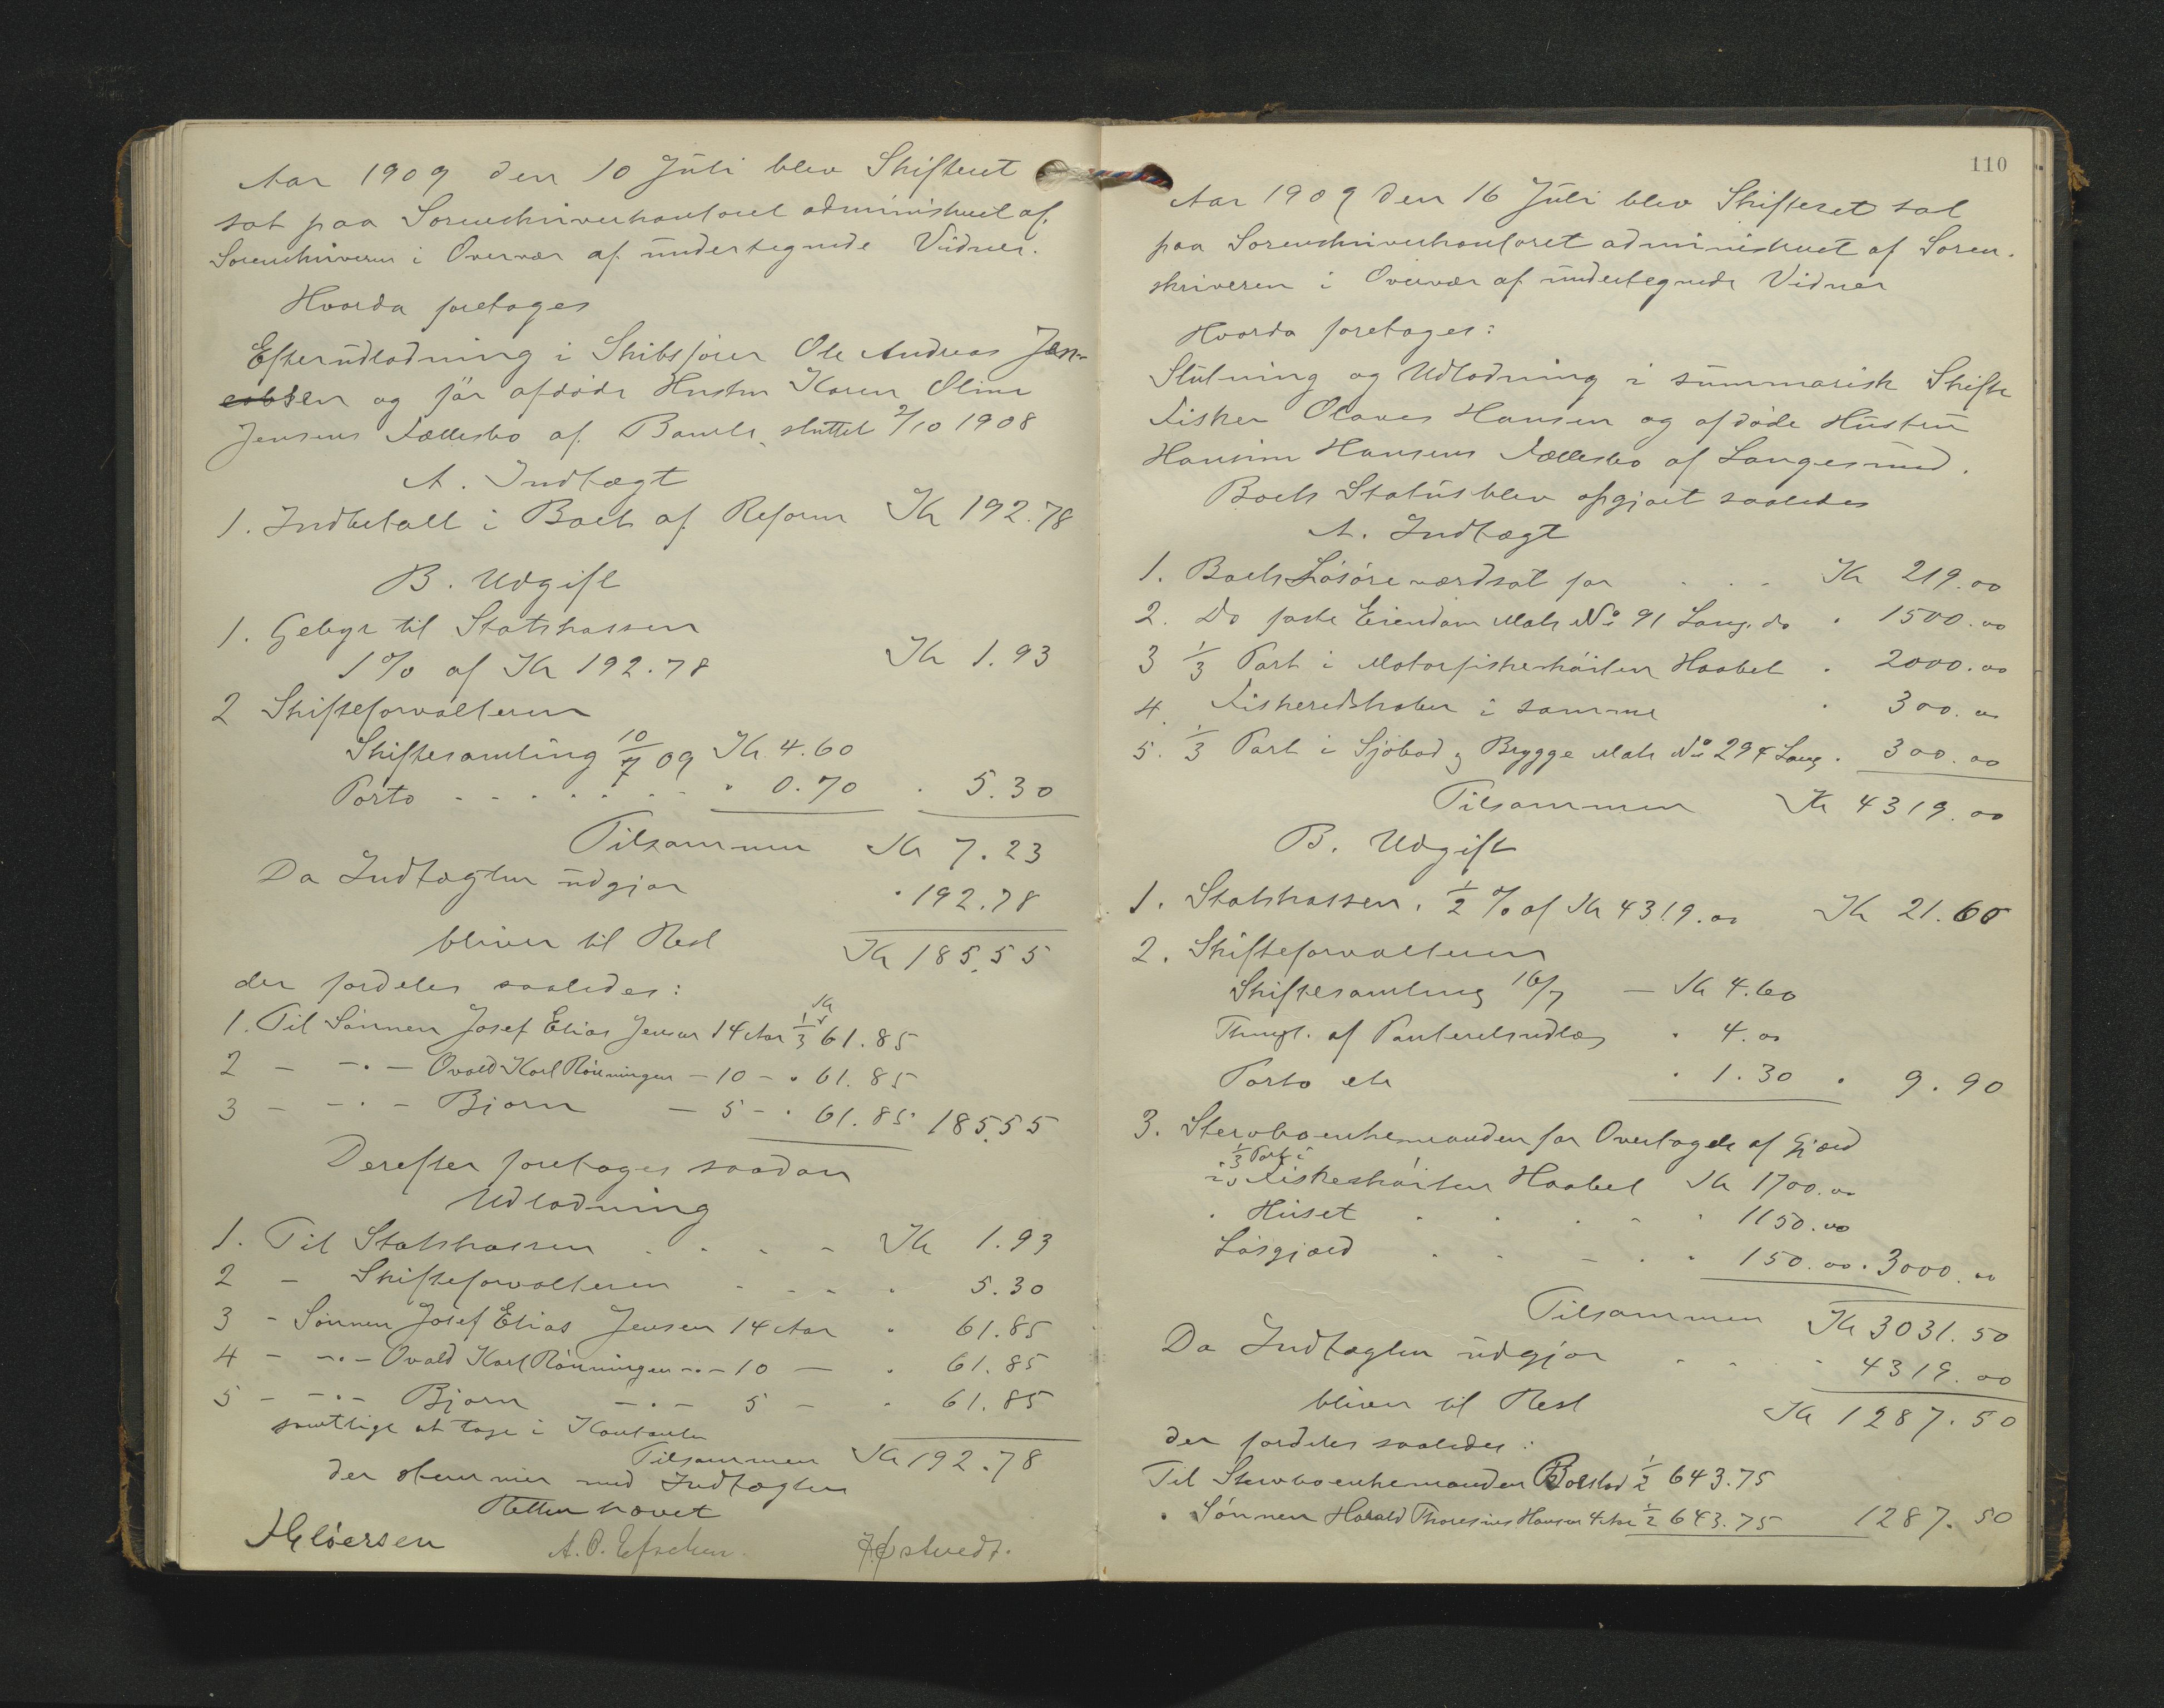 Aar 1909 den 10 Juli blev Skifteret
sat paa Sorenskriverkontoret administreret af
Sorenskriveren i Overvær af undertegnede Vidner.
Hvorda foretoges
Efterudlodning i Skibsfører Ole Andreas Jen-
sen og før afdøde Hustru Karen Oline
Jensens Fællesbo af Bamle, sluttet 2/10 1908
A. Indtægt
1. Indbetalt i Boet af Reform Kr 192.78
B. Udgift
1. Gebyr til Statskassen
1% af Kr 192.78 Kr 1.93
2 Skifteforvalteren
Skiftesamling 10/7 09 Kr 4.60
Porto - - - - - - - " 0.70 " 5.30
Tilsammen Kr 7.23
Da Indtægten udgjør " 192.78
bliver til Rest Kr 185.55
der fordeles saaledes:
1. Til Sønnen Josef Elias Jensen 14 Aar 1/3 Kr 61.85
2 - -"- Ovald Karl Rönningen - 10 - " 61.85
3 - -"- Bjorn - 5 - " 61.85 185.55
Derefter foretoges saadan
Udlodning
1. Til Statskassen - - - - Kr 1.93
2 - Skifteforvalteren - - - " 5.30
3 - Sønnen Josef Elias Jensen 14 Aar " 61.85
4 - -"- Ovald Karl Rönningen -"- 10 - " 61.85
5 - -"- Bjorn -"- 5 - " 61.85
samtlige at tage i Kontanter
Tilsammen Kr 192.78
der stemmer med Indtægten
Retten hævet
110
Aar 1909 den 16 Juli blev Skifteret sat
paa Sorenskriverkontoret administreret af Soren-
skriveren i Overvær af undertegnede Vidner
Hvorda foretoges:
Slutning og Udlodning i summarisk Skifte
Fisker Olaves Hansen og afdøde Hustru
Hansine Hansens Fællesbo af Langesund.
Boets Status blev opgjort saaledes
A. Indtægt
1. Boets Løsøre værdsat for - - - Kr 219.00
2. Do faste Eiendom Matr No 91 Lang. do " 1500.00
3 1/3 Part i Motorfiskeskøiten Haabet " 2000.00
4. Fiskeredskaber i samme " 300.00
5. 1/3 Part i Sjøbod og Brygge Matr No 294 Lang " 300.00
Tilsammen Kr 4319.00
B. Udgift
1. Statskassen. 1/2 % af Kr 4319.00 Kr 21.60
2. Skifteforvalteren
Skiftesamling 16/7 - Kr 4.60
Thingl. af Panteretsudlæg " 4.00
Porto etc " 1.30 " 9.90
3. Stervboenkemanden for Overtagelse af Gjæld
1/3 Part i
i Fiskeskøiten Haabet Kr 1700.00
" Huset " 1150.00
Løsgjæld " 150.00 " 3000.00
Tilsammen Kr 3031.50
Da Indtægten udgjør - - - - 4319.00
bliver til Rest Kr 1287.50
der fordeles saaledes:
Til Stervboenkemanden Boslod 1/2 643.75
" Sønnen Harald Thoresius Hansen 4 Aar 1/2 643.75 1287.50